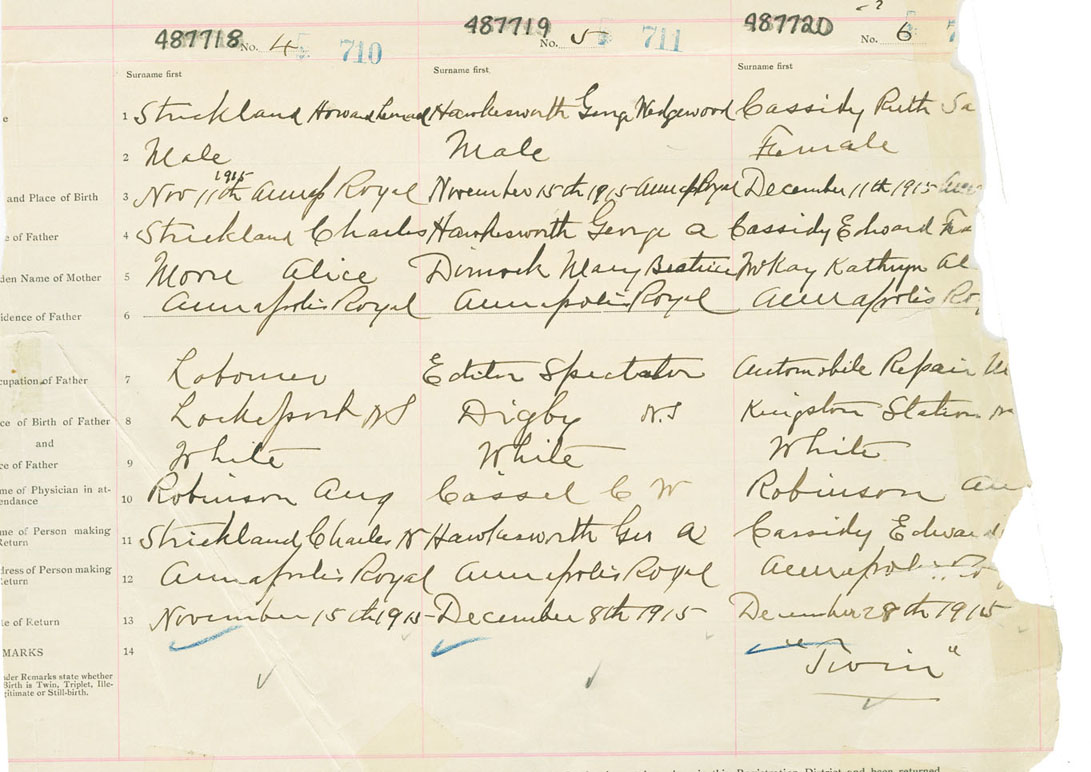 487718 No. 4 710 487719 No. 5 711 487720 No. 6
Surname first Surname first Surname first
1 Strickland Howard Hawkesworth George Wedgewood Cassidy Ruth Sa
2 Male Male Female
and Place of Birth 3 Nov 11th 1915 Annap Royal November 15th 1915 Annap Royal December 11th 1915
e of Father 4 Strickland Charles Hawkesworth George A Cassidy Edward
den Name of Mother 5 Alice Dimock Mary Beatrice McKay Kathryn Al
Annapolis Royal Annapolis Royal Annapolis Ro
idence of Father 6
cupation of Father 7 Labourer Editor Spectator Automobile Repair
ce of Birth of Father 8 Lockeport NS Digby N.S Kingston Station
and
ce of Father 9 White White White
me of Physician in at-
endance 10 Robinson Aug Cassel C W Robinson Au
me of Person making
Return 11 Strickland Charles N Hawkesworth Geo A Cassidy Edward
dress of Person making
Return 12 Annapolis Royal Annapolis Royal Annapolis
te of Return 13 November 15th 1915 December 8th 1915 December 28th 1915
MARKS 14 "Twin"
nder Remarks state whether
Birth is Twin, Triplet, Ille-
gitimate or Still-birth.
in this Registration District and been returned